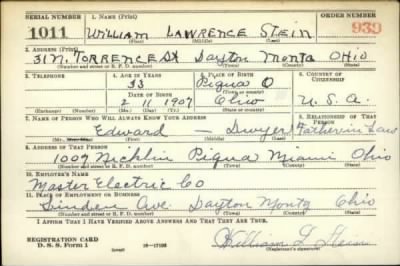 SERIAL NUMBER 1. NAME (Print) ORDER NUMBER
1011 William Lawrence Stein 939
(First) (Middle) (Last)
2. ADDRESS (Print)
31 N. Torrence St Dayton Monta Ohio
(Number and street or R. F. D. number) (Town) (County) (State)
3. TELEPHONE 4. AGE IN YEARS 5. PLACE OF BIRTH 6. COUNTRY OF CITIZENSHIP
33 Piqua O
DATE OF BIRTH (Town or county)
2 11 1907 Ohio U.S.A.
(Exchange) (Number) (Mo.) (Day) (Yr.) (State or country)
7. NAME OF PERSON WHO WILL ALWAYS KNOW YOUR ADDRESS 8. RELATIONSHIP OF THAT PERSON
Edward — Dwyers Father in Law
(First) (Middle) (Last)
9. ADDRESS OF THAT PERSON
1009 Nicklin Piqua Miami Ohio
(Number and street or R. F. D. number) (Town) (County) (State)
10. EMPLOYER'S NAME
Master Electric Co
11. PLACE OF EMPLOYMENT OR BUSINESS
Linden Ave. Dayton Montg Ohio
(Number and street or R. F. D. number) (Town) (County) (State)
I AFFIRM THAT I HAVE VERIFIED ABOVE ANSWERS AND THAT THEY ARE TRUE.
REGISTRATION CARD
D. S. S. Form 1 (over) 16—17105 William L. Stein
(Registrant's signature)